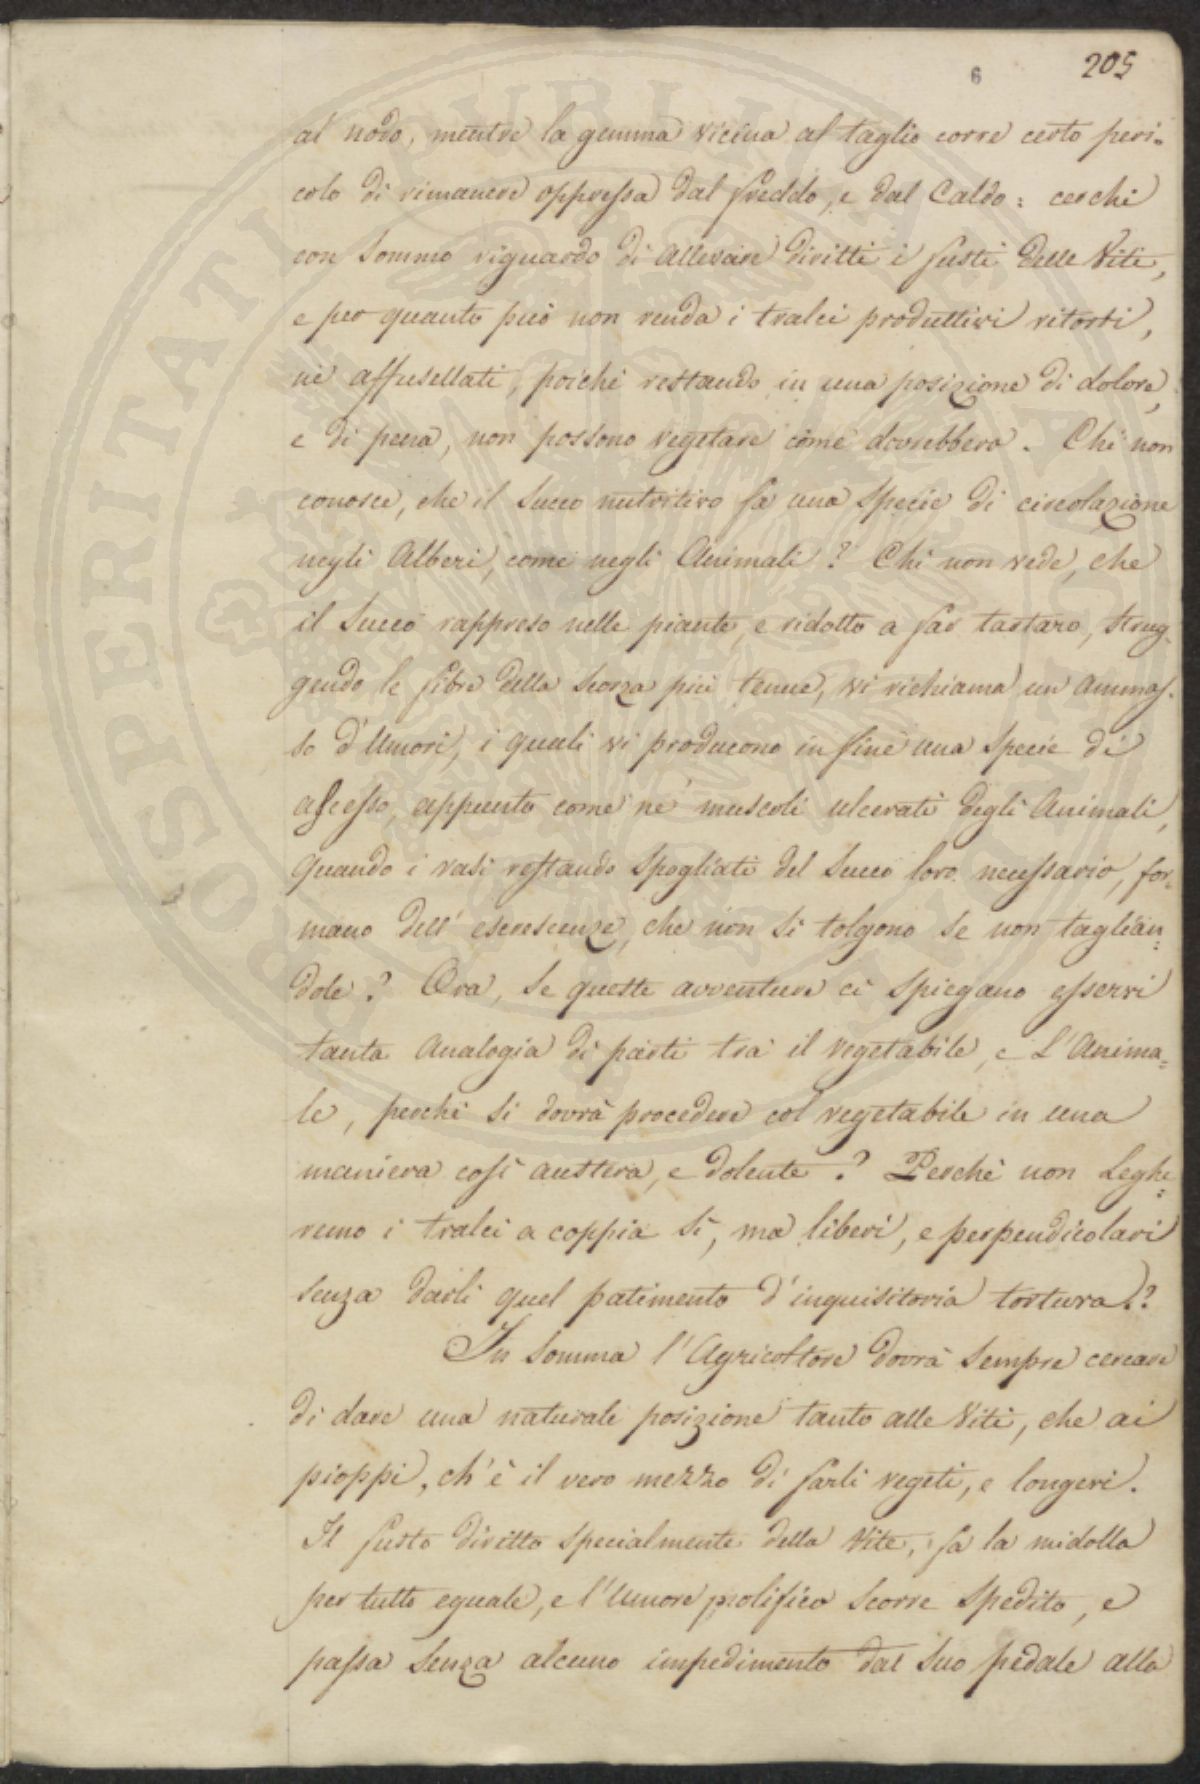 205
6
al nodo, mentre la gemma vicina al taglio corre certo peri=
colo di rimanere oppressa dal freddo, e dal Caldo: cerchi
con sommo riguardo di allevare diritti i fusti delle Viti,
e per quanto può non renda i tralci produttivi ritorti,
nè affusellati, poichè restando in una posizione di dolore,
e di pena, non possono vegetare come dovrebbero. Chi non
conosce, che il succo nutritivo fa una specie di circolazione
negli Alberi, come negli Animali? Chi non vede, che
il succo rappreso nelle piante, e ridotto a far tartaro, strug=
gendo le fibre della scorza più tenue, vi richiama un ammas=
so d'Umori, i quali vi producono in fine una specie di
ascesso, appunto come ne' muscoli ulcerati degli Animali,
quando i vasi restando spogliati del succo loro necessario, for=
mano dell'escrescenze, che non si tolgono se non taglian=
dole? Ora, se queste avventure ci spiegano esservi
tanta Analogia di parti tra il vegetabile, e l'Anima=
le, perchè si dovrà procedere col vegetabile in una
maniera così austera, e dolente? Perchè non Leghe=
remo i tralci a coppia sì, ma liberi, e perpendicolari
senza darli quel patimento d'inquisitoria tortura??
In somma l'Agricoltore dovrà sempre cercare
di dare una naturale posizione tanto alle Viti, che ai
pioppi, ch'è il vero mezzo di farli vegeti, e longevi.
Il fusto diritto specialmente della Vite, fa la midolla
per tutto eguale, e l'Umore prolifico scorre spedito, e
passa senza alcuno impedimento dal suo pedale alla
PROSPERITATI PUBLICAE